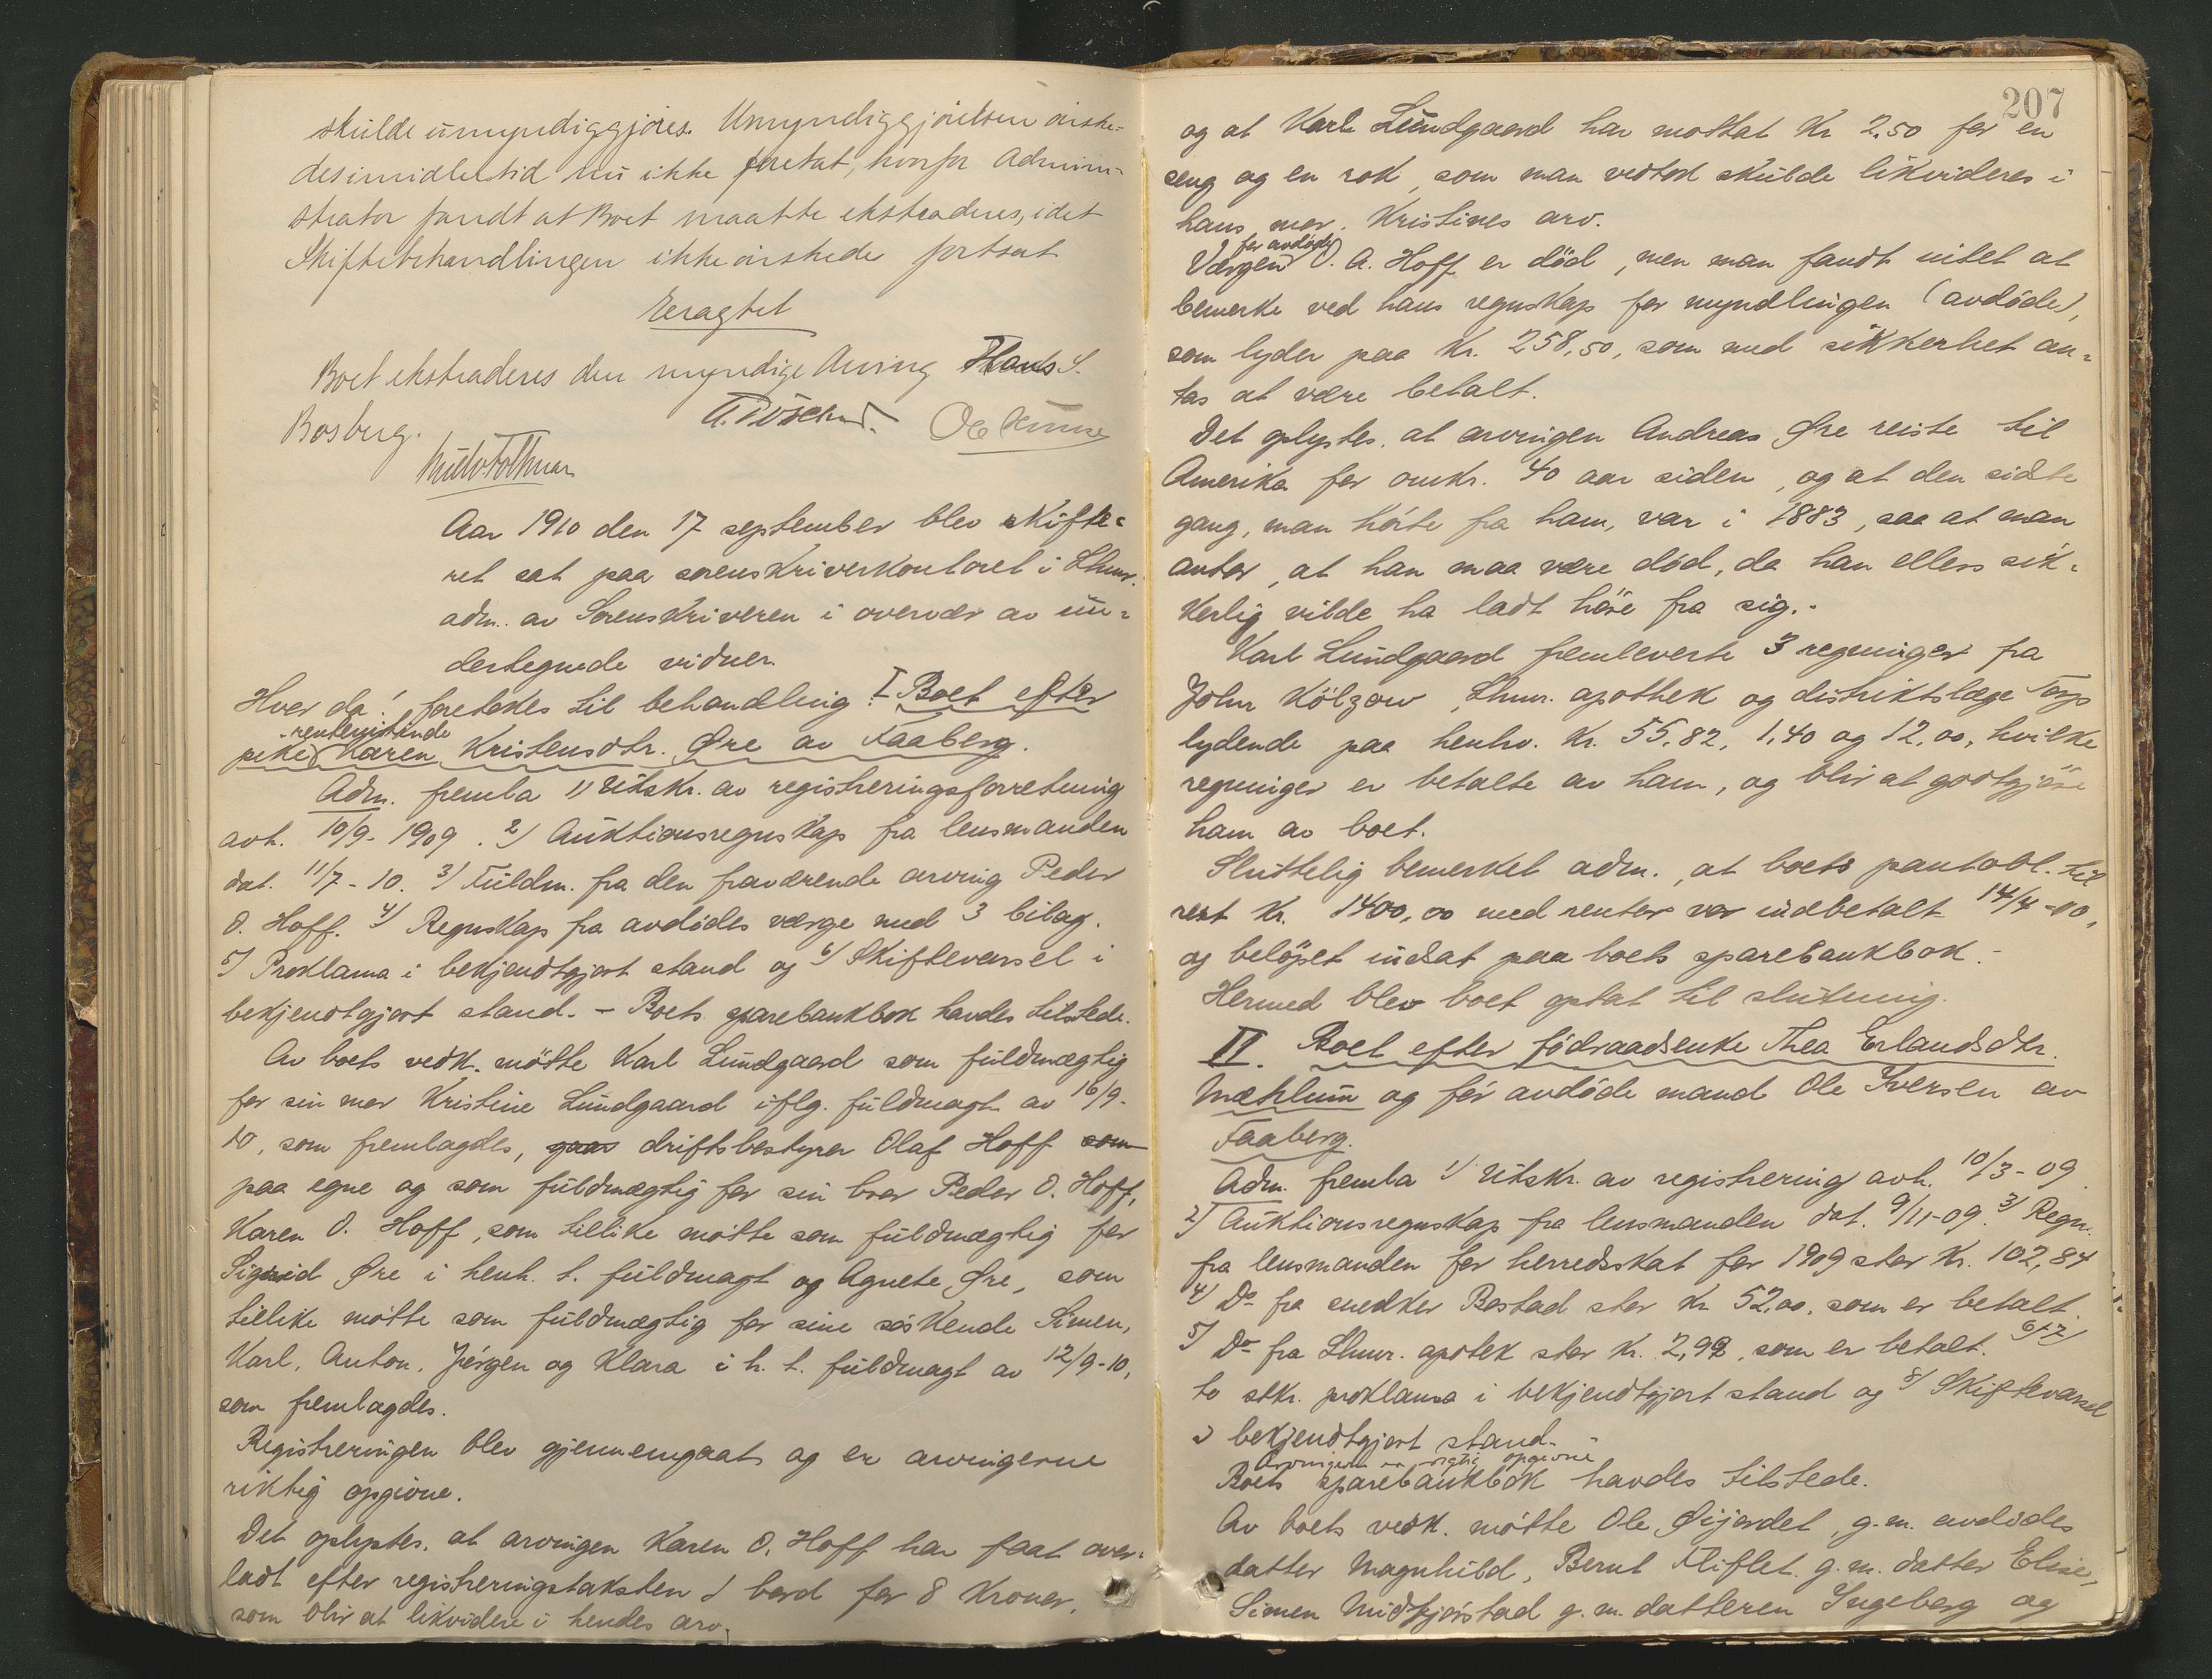 skulde umyndiggjøres. Umyndiggjørelsen ønske-
des imidlertid nu ikke foretat, hvorfor Admini-
strator fandt at Boet maatte ekstraderes, idet
Skiftebehandlingen ikke ønskedes fortsat
Eragtet
Boet ekstraderes den myndige Arving Hans S.
Bosberg.
Aar 1910 den 17 september blev skifte-
ret sat paa sorenskriverkontoret i Lhmr.
adm. av Sorenskriveren i overvær av un-
dertegnede vidner.
Hvor da: foretokes til behandling: I Boet efter
rentenistinde
pike Karen Kristensdtr. Øre av Faaberg.
Adm. fremla 1) Utskr. av registreringsforretning
avh. 10/9-1909. 2) Auktionsregnskap fra lensmanden
dat. 11/7-10. 3) Fuldm. fra den fraværende arving Peder
O. Hoff. 4) Regnskap fra avdødes værge med 3 bilag.
5) Proklama i bekjendtgjort stand og 6) Skiftevarsel i
bekjendtgjort stand. - Boets sparebankbok havdes tilstede.
Av boets vedk. møtte Karl Lundgaard som fuldmægtig
for sin mor Kristine Lundgaard iflg. fuldmagt av 16/9-
10, som fremlagdes, driftsbestyrer Olaf Hoff som
paa egne og som fuldmægtig for sin bror Peder O. Hoff,
Karen O. Hoff, som tillike møtte som fuldmægtig for
Sigrid Øre i henh. t. fuldmagt og Agnete Øre, som
tillike møtte som fuldmægtig for sine søskende Simen,
Karl, Anton, Jørgen og Klara i h. t. fuldmagt av 12/9-10,
som fremlagdes.
Registreringen blev gjennemgaat og er arvingerne
riktig opgivne.
Det oplystes, at arvingen Karen O. Hoff har faat over-
ladt efter registreringstaksten 1 bord for 8 Kroner,
som blir at likvidere i hendes arv.
207
og at Karl Lundgaard har mottat Kr 2,50 for en
seng og en rok, som man vedtok skulde likvideres i
hans mor, Kristines arv.
for avdøde
Værgen O. A. Hoff er död, men man fandt intet at
bemerke ved hans regnskap for myndlingen (avdøde),
som lyder paa Kr. 258,50, som med sikkerhet an-
tas at være betalt.
Det oplystes, at arvingen Andreas Øre reiste til
Amerika for omkr. 40 aar siden, og at den sidste
gang, man hørte fra ham, var i 1883, saa at man
antar, at han maa være død, da han ellers sik-
kerlig vilde ha ladt høre fra sig. -
Karl Lundgaard fremleverte 3 regninger fra
John Kölzow, Lhmr. apothek og distriktslæge Torp
lydende paa henhv. Kr. 55,82, 1,40 og 12,00, hvilke
regninger er betalte av ham, og blir at godtgjøre
ham av boet.
Sluttelig bemerket adm., at boets pantobl. til
rest Kr. 1400,00 med renter var indbetalt 14/4-10,
og beløpet indsat paa boets sparebankbok. -
Hermed blev boet optat til slutning.
II. Boet efter födraadsenke Thea Erlandsdtr.
Mæhlum og før avdøde mand Ole Iversen av
Faaberg.
Adm. fremla 1) Utskr. av registrering avh. 10/3-09.
2) Auktionsregnskap fra lensmanden dat. 9/11-09. 3) Regn.
fra lensmanden for herredsskat for 1909 stor Kr. 102,84
4) Do fra snedker Bostad stor Kr 52,00, som er betalt.
5) Do fra Lhmr. apotek stor Kr. 2,92, som er betalt. 6)+7)
to stkr. proklama i bekjendtgjort stand og 8) Skiftevarsel
i bekjendtgjort stand. -
Arvingerne er rigtig opgivne
Boets sparebankbok havdes tilstede.
Av boets vedk. møtte Ole Øijordet, g. m. avdødes
datter Magnhild, Bernt Fliflet g. m. datter Elise,
Simen Midtfjørstad g. m. datteren Ingeborg og